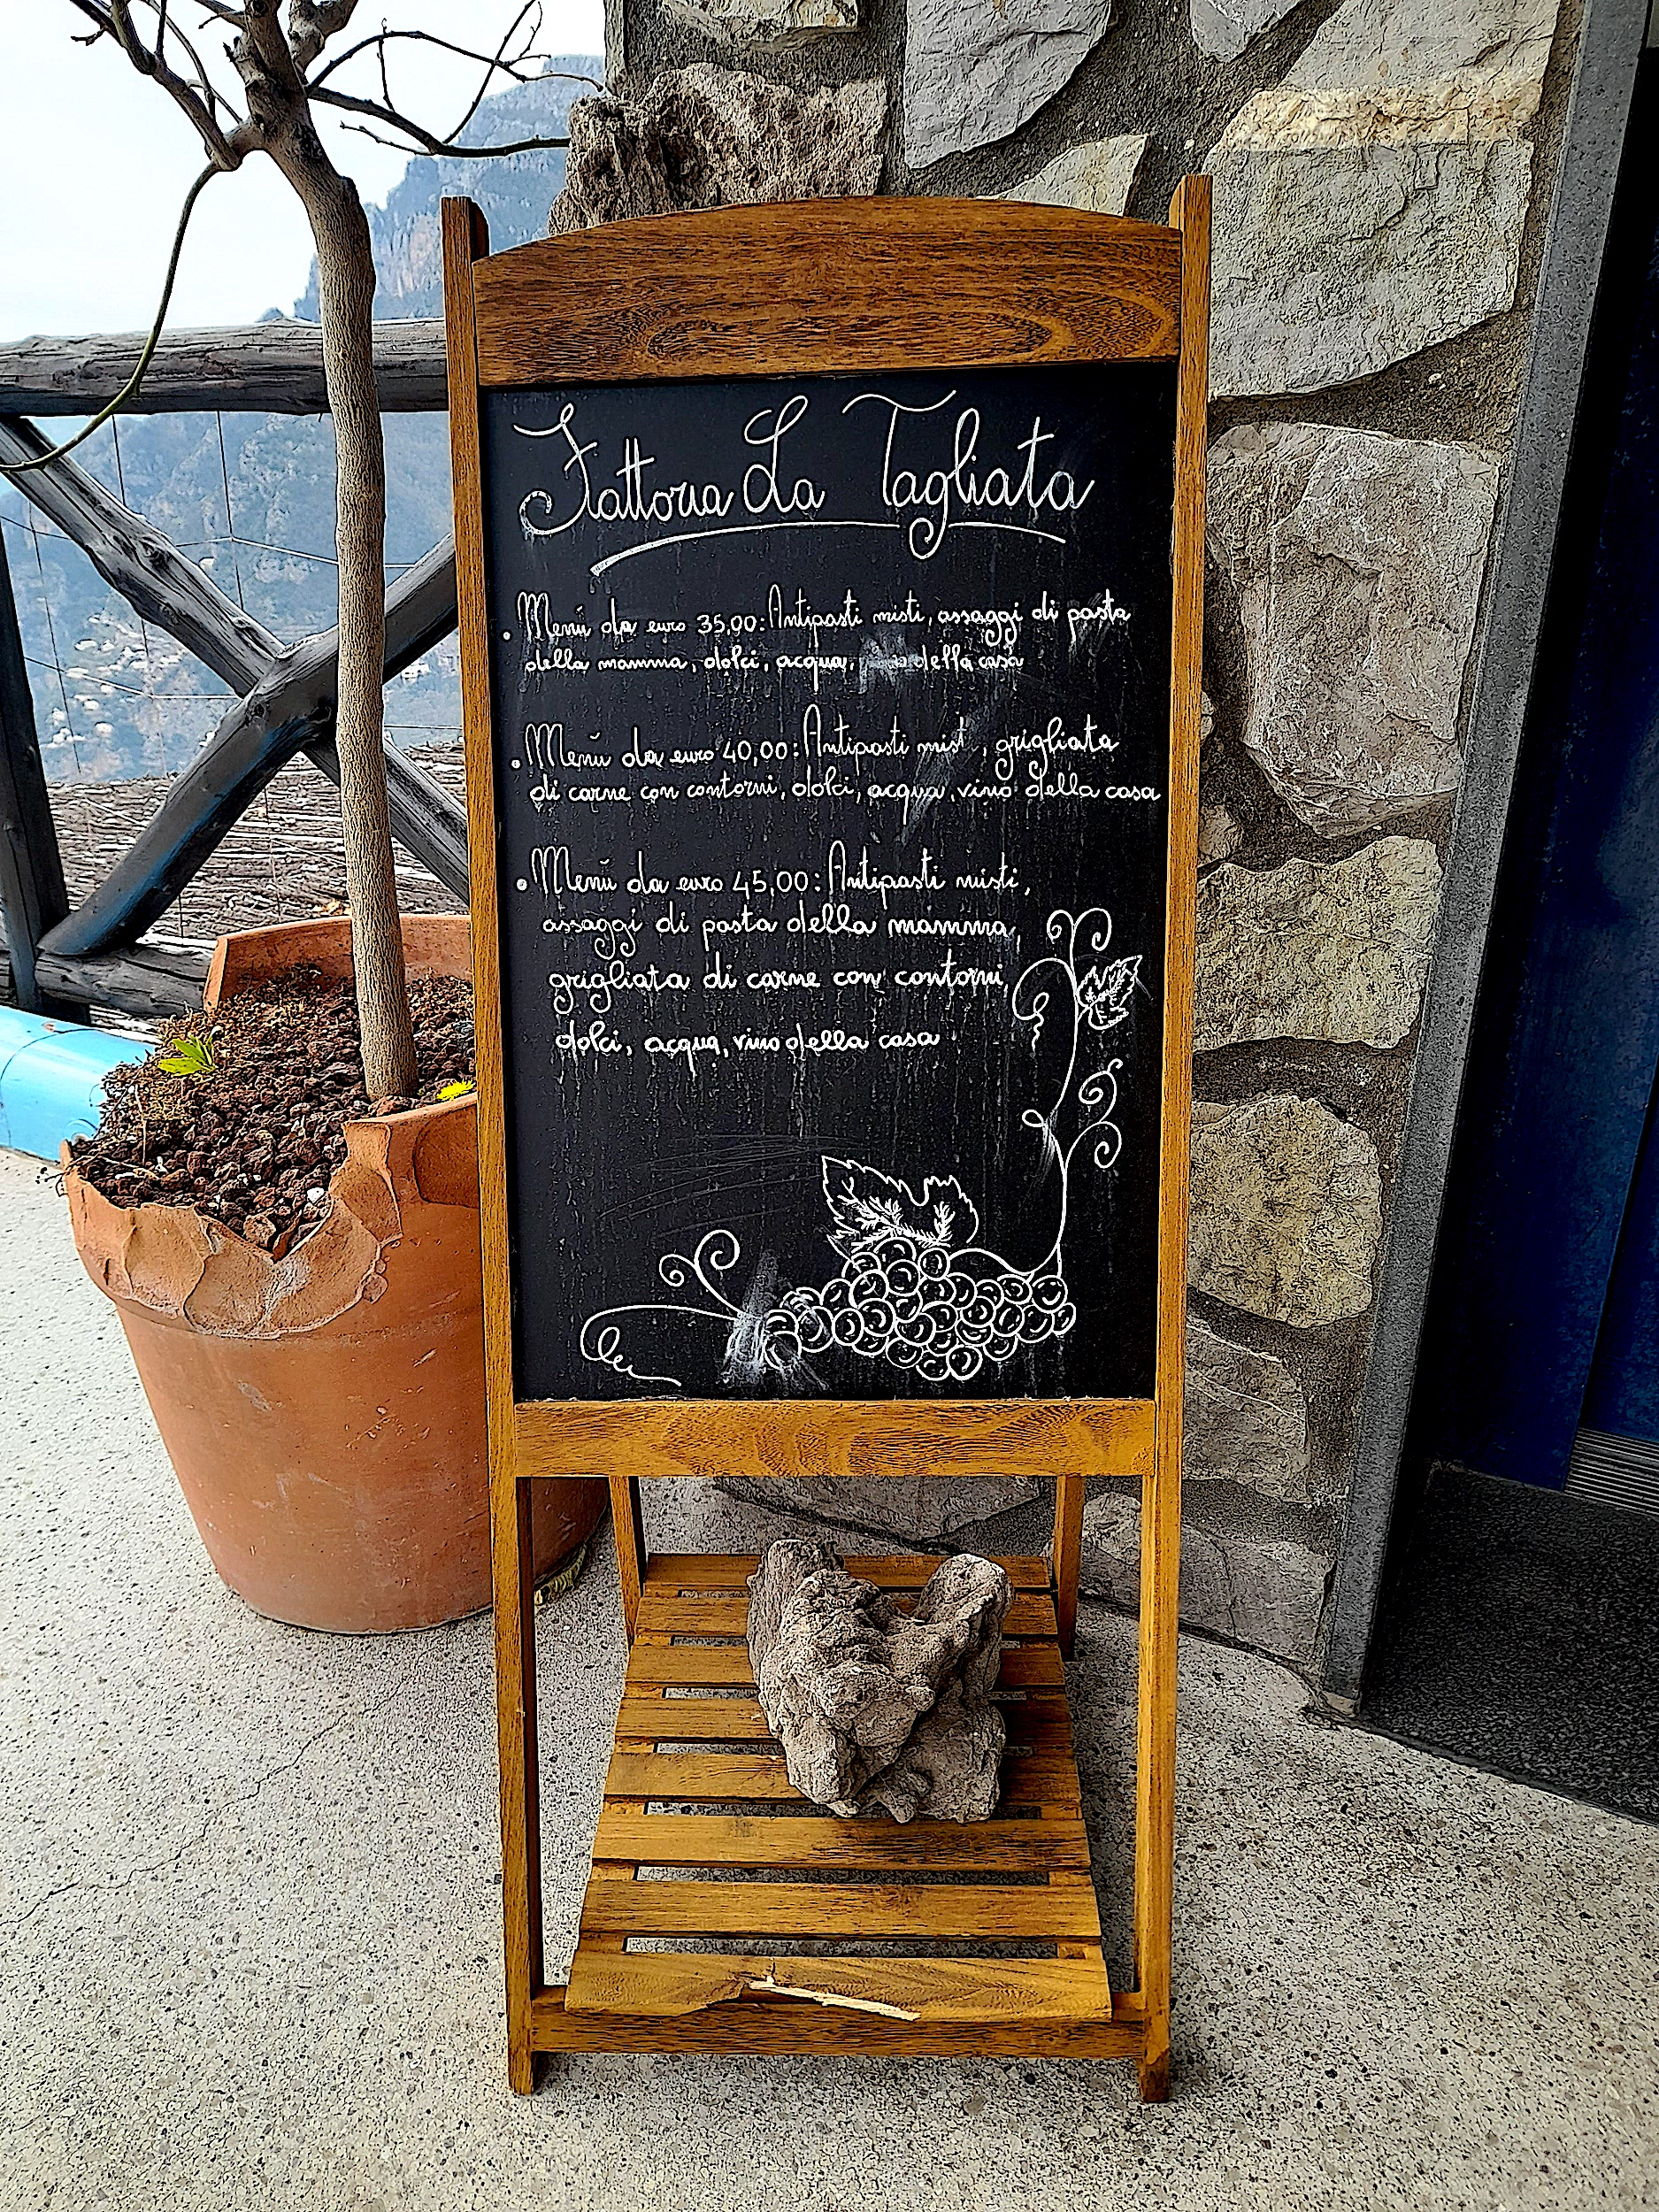 Fattoria La Tagliata
• Menú da euro 35,00: Antipasti misti, assaggi di pasta
della mamma, dolci, acqua, della casa
• Menú da euro 40,00: Antipasti mist , grigliata
di carne con contorni, dolci, acqua, vino della casa
• Menú da euro 45,00: Antipasti misti,
assaggi di pasta della mamma,
grigliata di carne con contorni,
dolci, acqua, vino della casa